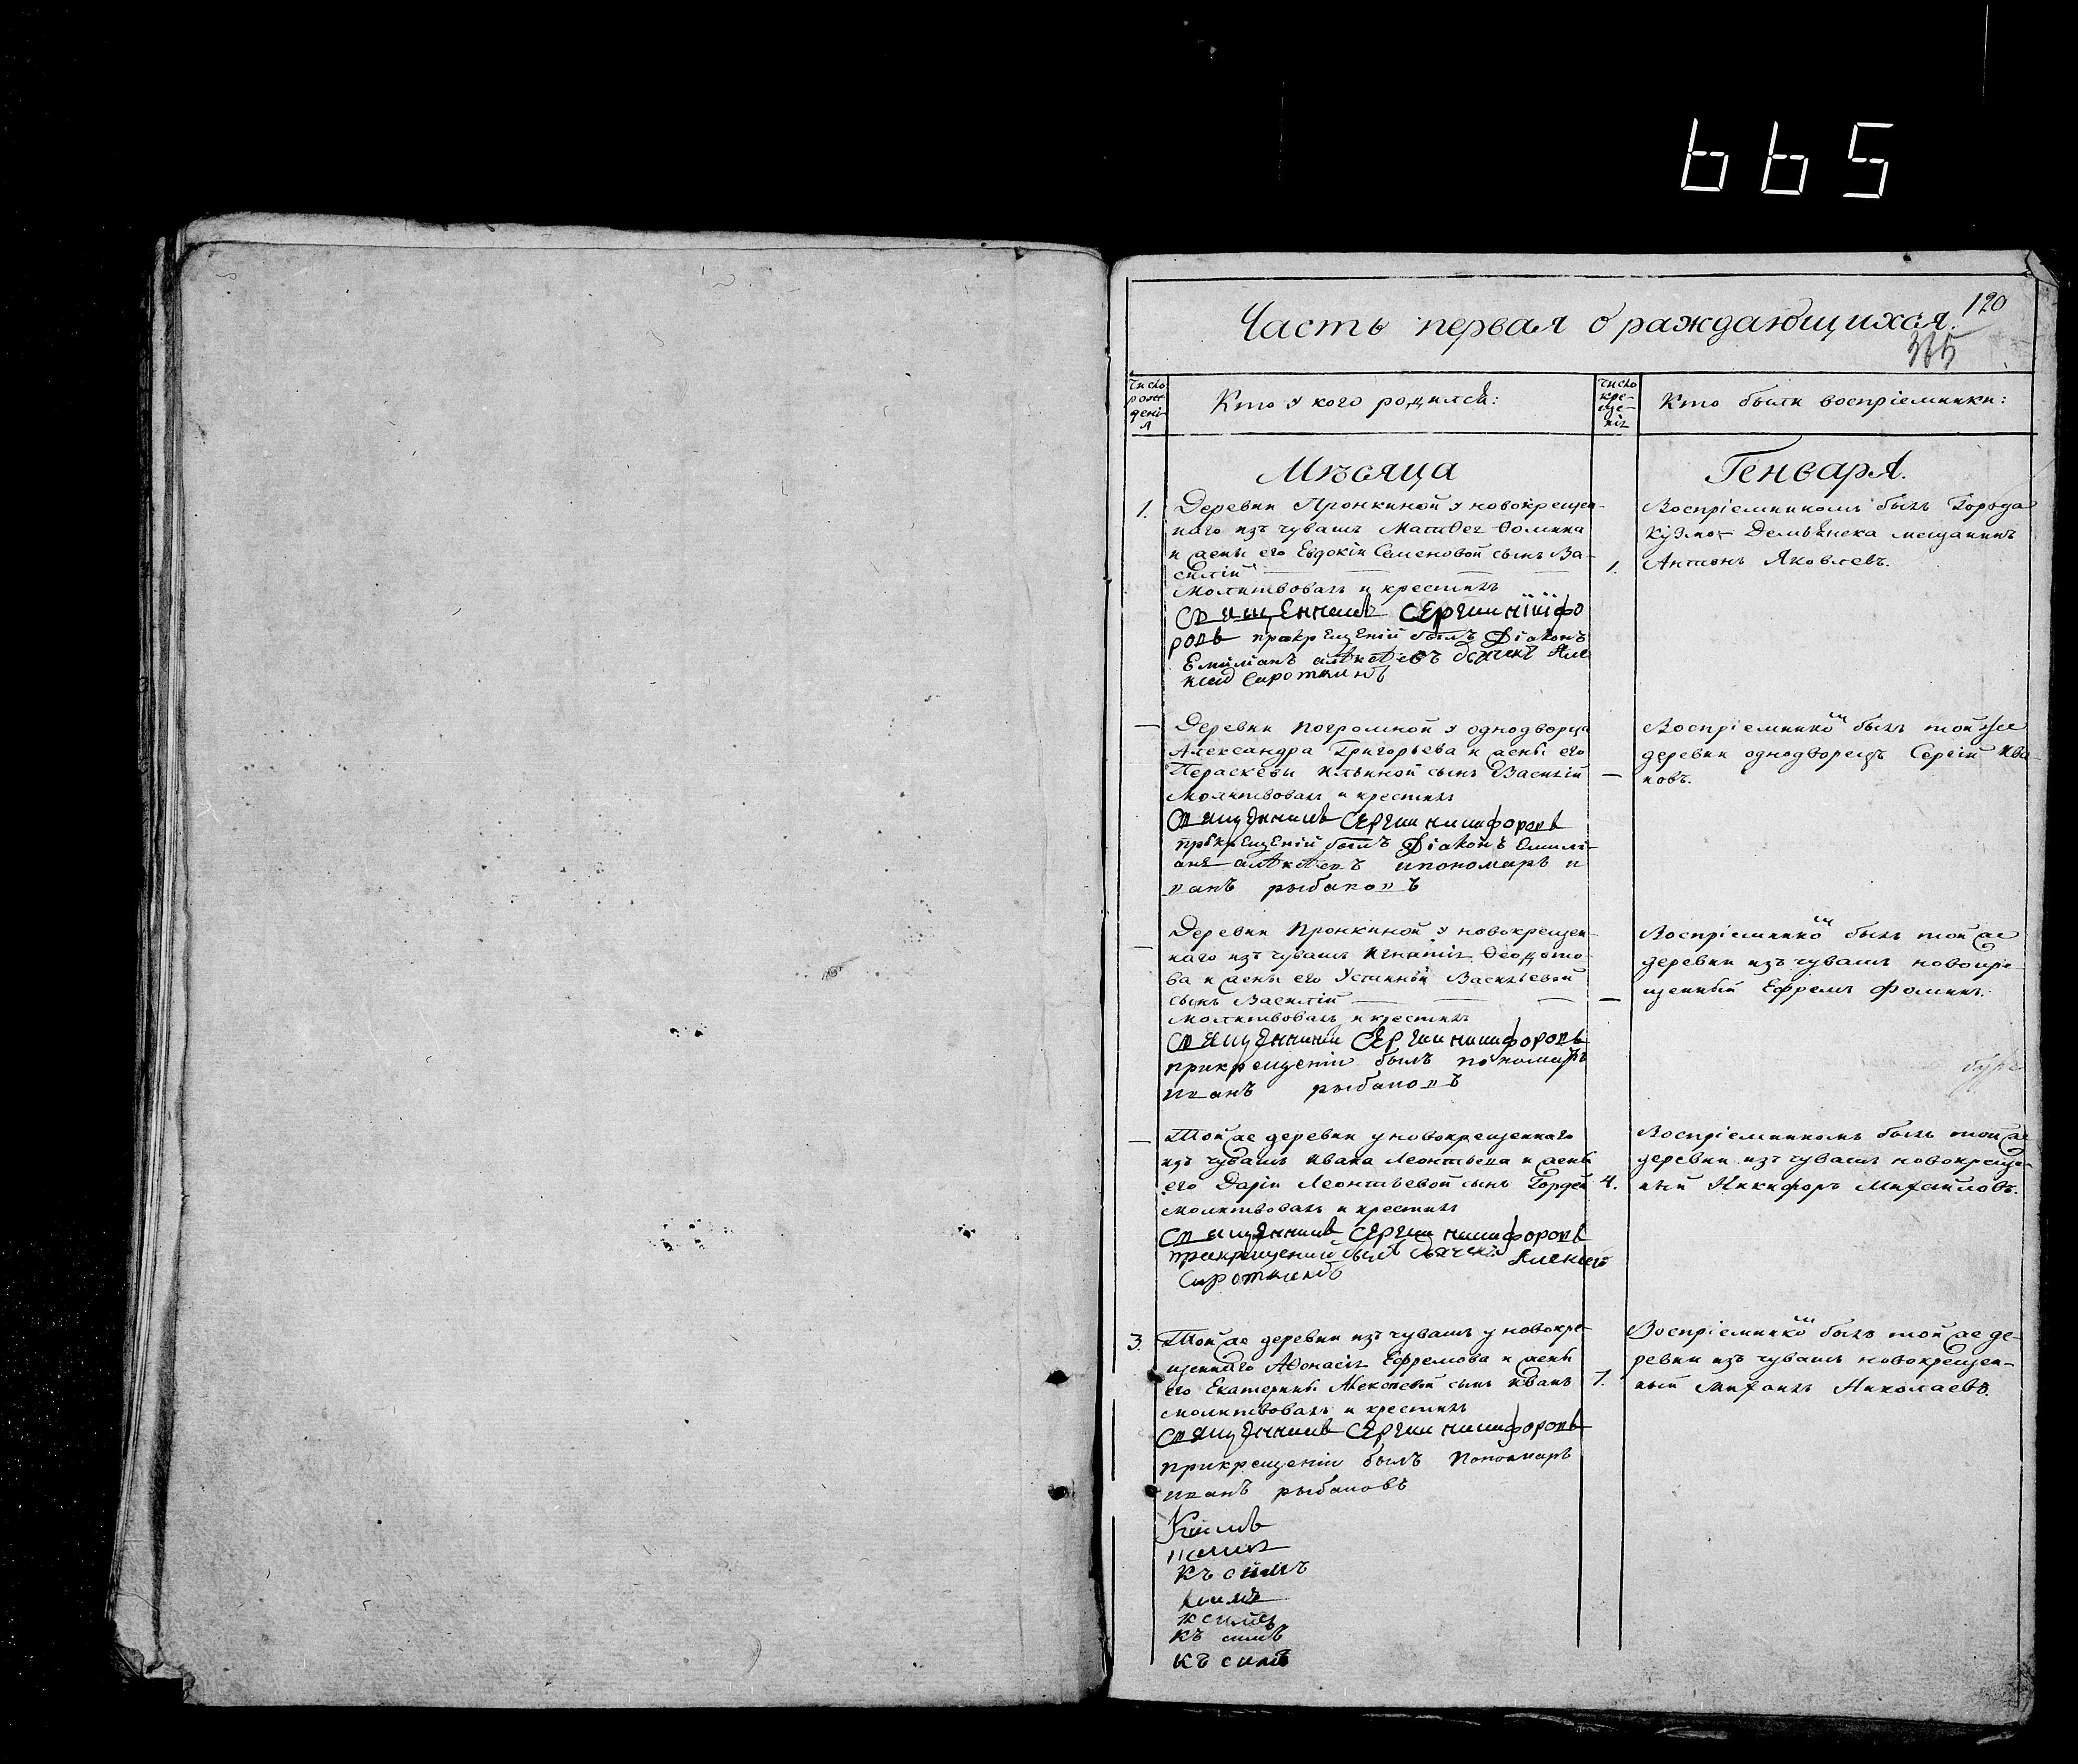 665
120
Часть первая о раждающихся.
365
число рож-дені-я
Кто у кого родился:
число кре-ще-нія
Кто были воспріемники:
Мѣсяца
Генваря.
1.
Деревни Пронкиной у новокрещен-
наго изъ чувашъ Матвея Ѳомина
и жены его Евдокіи Семеновой сынъ Ва-
силій
Молитвовалъ и крестилъ
Священникъ Сергии Никифо
ровъ прикрещеній былъ Діаконъ
Емиліанъ дьячекъ Але
ксей Сироткинъ
1.
Воспріемникомъ былъ Города
Кузмо Демьянска мещанинъ
Антонъ Яковлевъ.
—
Деревни Погромной у однодворца
Александра Григорьева и жены его
Параскевы Ильиной сынъ Василій
Молитвовалъ и крестилъ
Священникъ Сергии никифоровъ
прикрещеній былъ Діаконъ Емилі-
анъ ипономарь и
ванъ рыбаковъ
—
Воспріемникомъ былъ той же
деревни однодворецъ Сергій Ива-
новъ.
—
Деревни Пронкиной у новокрещен-
наго изъ чувашъ Игнатія Ѳеодото-
ва и жены его Устиньи Васильевой
сынъ Василій
Молитвовалъ и крестилъ
Священникъ Сергии никифоровъ
прикрещеніи былъ пономарь
иванъ рыбаковъ
—
Воспріемникомъ былъ той же
деревни изъ чувашъ новокре-
щенный Ефремъ Фоминъ.
—
Той же деревни у новокрещеннаго
изъ чувашъ Ивана Леонтьева и жены
его Даріи Леонтьевой сынъ Гордей
молитвовалъ и крестилъ
Священникъ Сергии никифоровъ
прикрещении былъ дьячекъ Алексей
Сироткинъ
4.
Воспріемникомъ былъ той же
деревни изъ чувашъ новокреще-
ный Никифоръ Михайловъ.
3.
Той же деревни изъ чувашъ у новокре-
щеннаго Аѳонасія Ефремова и жены
его Екатерины Алексѣевой сынъ Иванъ
молитвовалъ и крестилъ
Священникъ Сергии никифоровъ
прикрещеніи былъ Пономарь
иванъ рыбаковъ
7.
Воспріемникомъ былъ той же де-
ревни изъ чувашъ новокрещен-
ный Михаилъ Николаевъ.
Къ симъ
къ симъ